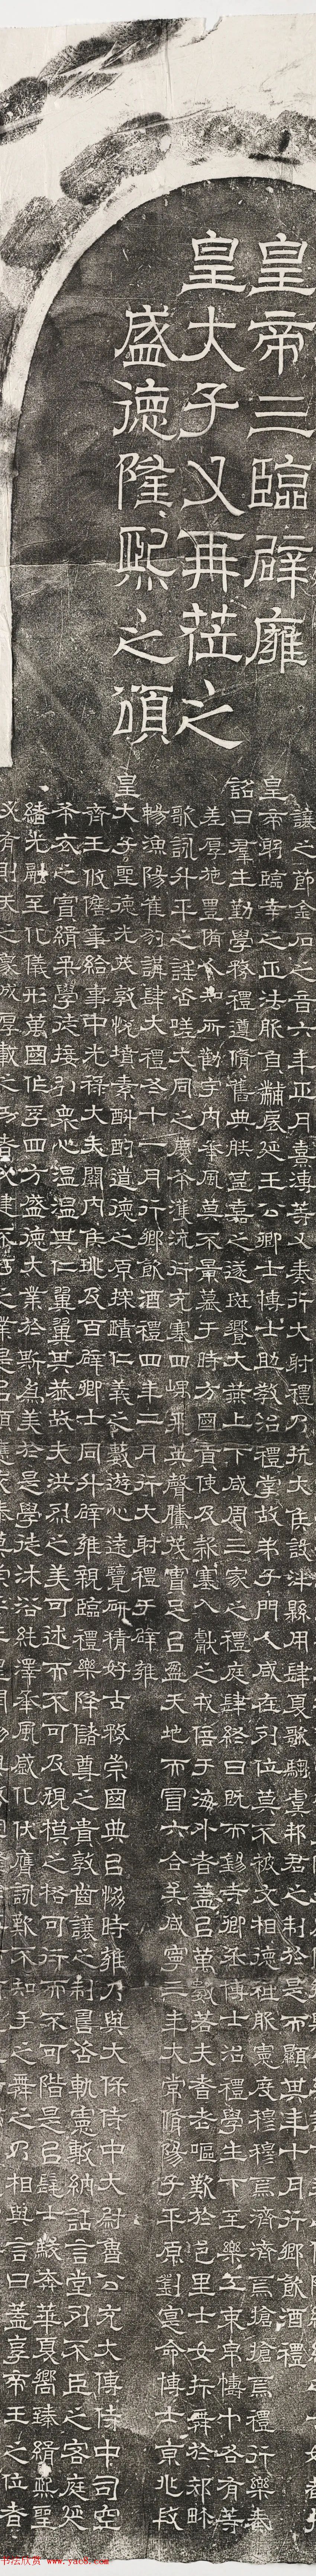 皇帝三臨辟雍
皇大子又再莅之
盛德隆熙之頌
讓之節金石之音六年正月熹溥等又奏行大射禮乃抗大侯設泮縣用肆夏歌騶虞邦君之制於是而顯其年十月行鄉飲酒禮
皇帝躬臨幸之正法服負黼扆延王公卿士博士助教治禮掌故弟子門人咸在列位莫不被文相德祗服憲度穆穆焉濟濟焉搶搶焉禮行樂奏
詔曰羣生勤學務禮遵脩舊典朕甚嘉之遂班饗大燕上下咸周三家之禮庭肆終日既而錫寺卿丞博士治禮學生下至樂工束帛幬巾各有等
差厚施豊備人知所勸宇内承風莫不景慕于時方國貢使及款塞入獻之戎倍于海外者蓋以萬數若夫耆老嘔歎於邑里士女抃舞於郊畛
歌詠升平之謠咨嗟大同之慶布濩流衍充塞四嵎飛英聲騰茂實足以盈天地而冒六合矣咸寧三年大常脩陽子平原劉寔命博士京兆段
暢漁陽崔豹講肄大禮冬十一月行鄉飲酒禮四年二月行大射禮于辟雍
皇大子聖德光茂敦悦墳素斟酌道德之原探賾仁義之藪遊心遠覽研精好古務崇國典以協時雍乃與大保侍中大尉魯公充大傅侍中司空
齊王攸詹事給事中光禄大夫關内侯珧及百辟卿士同升辟雍親臨禮樂降儲尊之貴敦齒讓之制咨軌憲敷納話言堂列不臣之客庭延
布衣之賓緝柔學徒接引衆心温温其仁翼翼其恭故夫洪烈之美可述而不可及規模之格可行而不可階是以髦士駿奔華夏嚮臻緝熙聖
緒光融至化儀形萬國作孚四方盛德大業於斯爲美於是學徒沐浴純澤承風感化伏膺詠歎不知手之舞之乃相與言曰蓋享帝王之位者
书法欣赏 www.yac8.com